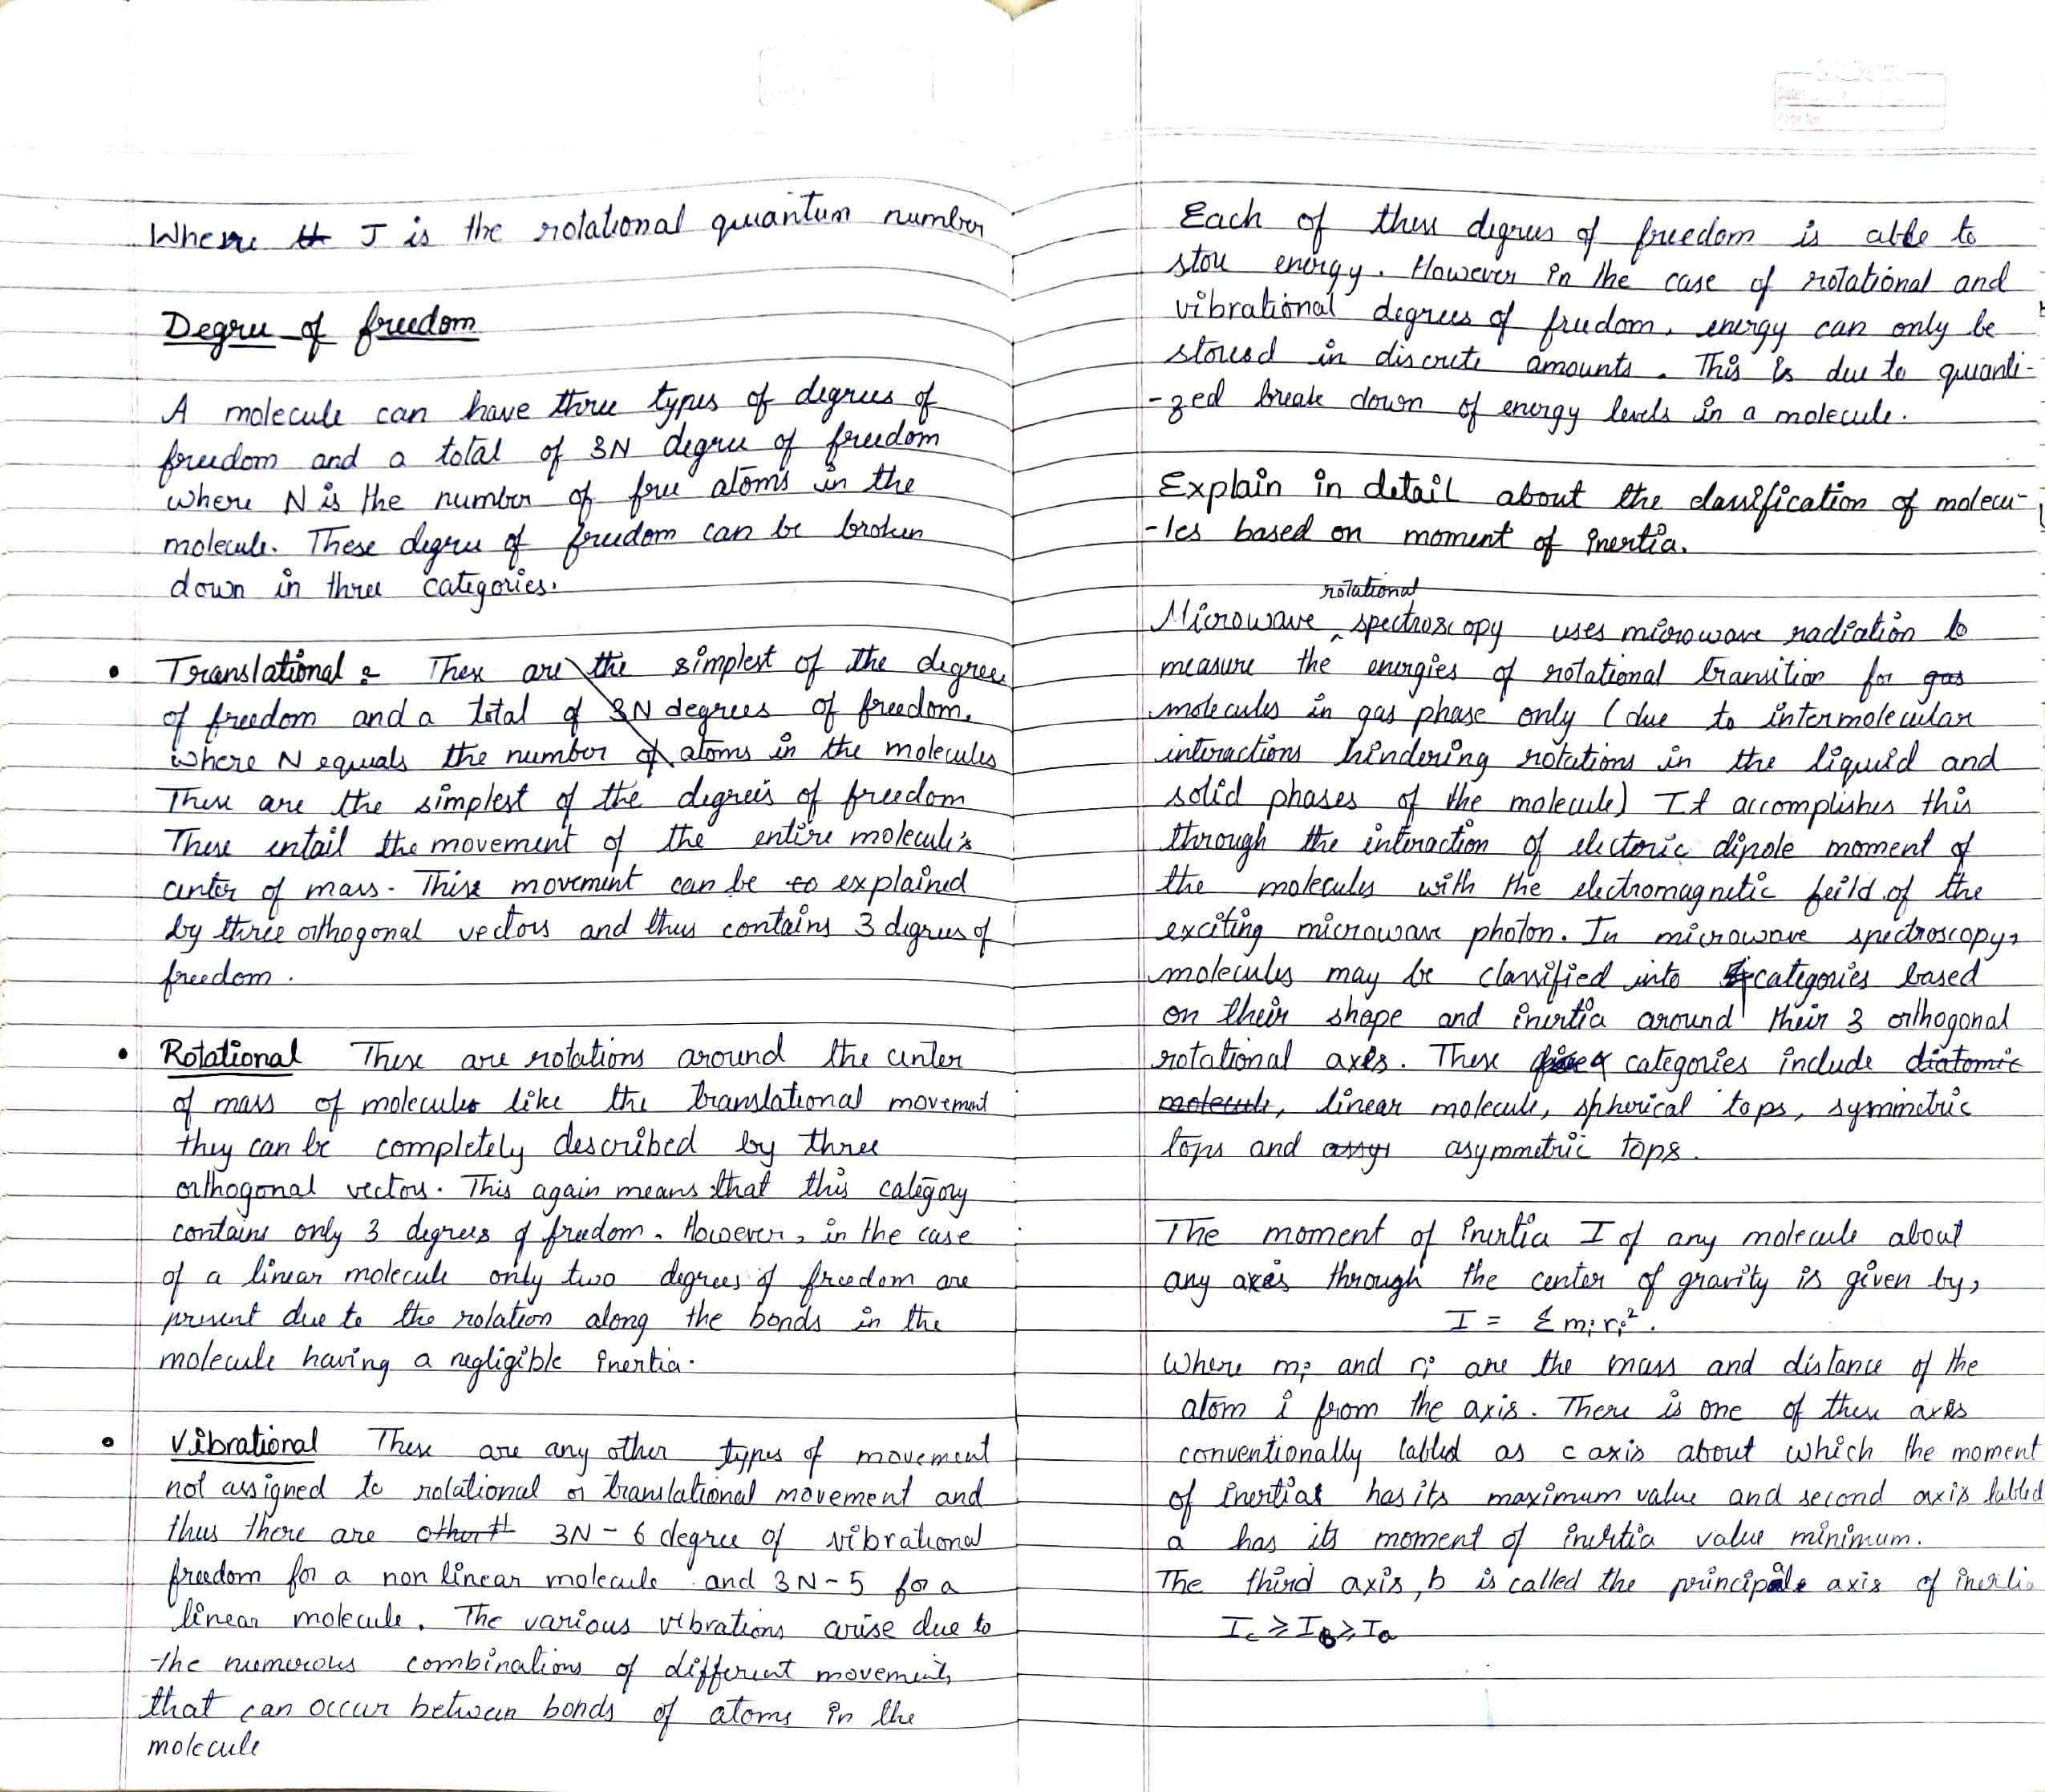 Where J is the rotational quantum number
Degree of freedom
A molecule can have three types of degrees of
freedom and a total of 3N degree of freedom
where N is the number of free atoms in the
molecule. These degree of freedom can be broken
down in three categories.
• Translational : These are the simplest of the degree
of freedom and a total of 3N degrees of freedom.
where N equals the number of atoms in the molecules
These are the simplest of the degrees of freedom
These entail the movement of the entire molecule's
center of mass. This movement can be to explained
by three orthogonal vectors and thus contains 3 degrees of
freedom.
• Rotational These are rotations around the center
of mass of molecules like the translational movement
they can be completely described by three
orthogonal vectors. This again means that this category
contains only 3 degrees of freedom. However, in the case
of a linear molecule only two degrees of freedom are
present due to the rotation along the bonds in the
molecule having a negligible inertia.
• Vibrational These are any other types of movement
not assigned to rotational or translational movement and
thus there are other 3N-6 degree of vibrational
freedom for a non linear molecule and 3N-5 for a
linear molecule. The various vibrations arise due to
the numerous combinations of different movements
that can occur between bonds of atoms in the
molecule
Date:
Page No.
Each of these degrees of freedom is able to
store energy. However in the case of rotational and
vibrational degrees of freedom, energy can only be
stored in discrete amounts. This is due to quanti-
-zed break down of energy levels in a molecule.
Explain in detail about the classification of molecu-
-les based on moment of inertia.
rotational
Microwave ^ spectroscopy uses microwave radiation to
measure the energies of rotational transition for gas
molecules in gas phase only (due to intermolecular
interactions hindering rotations in the liquid and
solid phases of the molecule) It accomplishes this
through the interaction of electoric dipole moment of
the molecules with the electromagnetic feild of the
exciting microwave photon. In microwave spectroscopy,
molecules may be classified into 4 categories based
on their shape and inertia around their 3 orthogonal
rotational axes. These 4 categories include diatomic
molecule, linear molecule, spherical tops, symmetric
tops and assy asymmetric tops.
The moment of inertia I of any molecule about
any axis through the center of gravity is given by,
I = Σ mᵢrᵢ².
Where mᵢ and rᵢ are the mass and distance of the
atom i from the axis. There is one of these axes
conventionally labled as c axis about which the moment
of inertia has its maximum value and second axis labled
a has its moment of inertia value minimum.
The third axis, b is called the principale axis of inertia
I꜀ ≥ I_B ≥ Iₐ